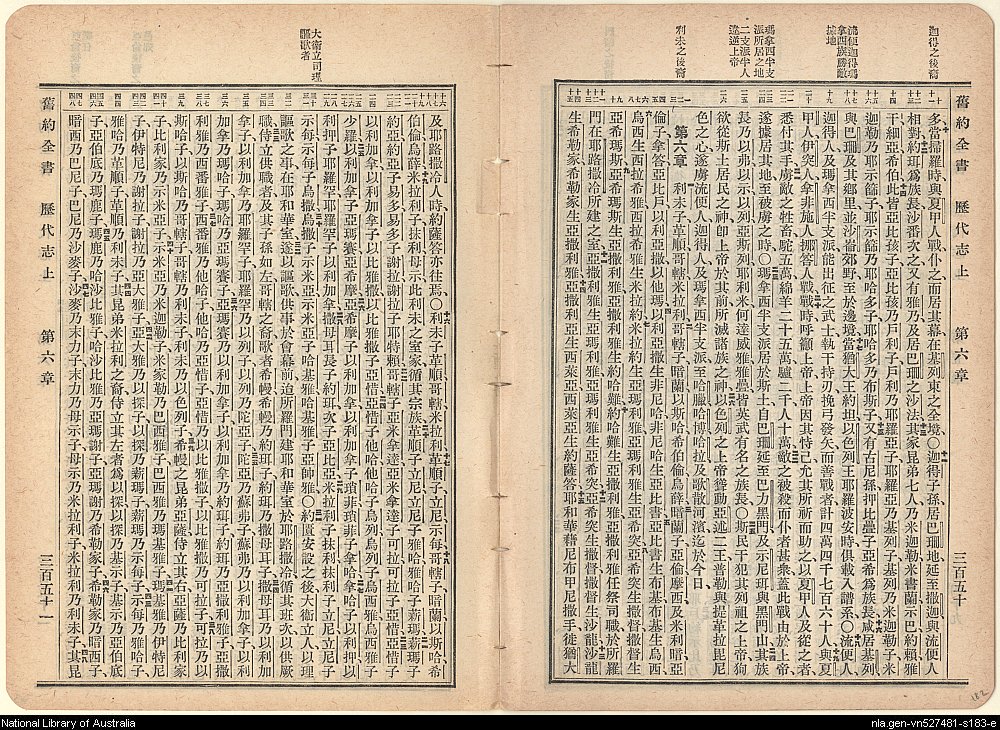 舊約全書 歷代志上 第六章 三百五十
迦得之後裔
流便迦得瑪
拿西族勝敵
據地
瑪拿西半支
派所居之地
二支派半人
違逆上帝
利未之後裔
多當掃羅時與夏甲人戰仆之而居其幕在基列東之全境〇迦得子孫居巴珊地延至撒迦與流便人
相對約珥為族長沙番次之又有雅乃及居巴珊之沙法其家昆弟七人乃米迦勒米書蘭示巴約賴雅
干細亞希伯此皆亞比孩子亞比孩乃戶利子戶利乃耶羅亞子耶羅亞乃基列子基列乃米迦勒子米
迦勒乃耶示篩子耶示篩乃耶哈多子耶哈多乃布斯子又有古尼孫押比疊子亞希為族長咸居基列
與巴珊及其鄉里並沙崙郊野至於邊境當猶大王約坦以色列王耶羅波安時俱載入譜系〇流便人
迦得人及瑪拿西半支派能出征之武士執干持刃挽弓發矢而善戰者計四萬四千七百六十人與夏
甲人伊突人拿非施人挪答人戰戰時呼籲上帝上帝因其恃己尤其所祈而助之以夏甲人及從之者
悉付其手虜敵之牲畜駝五萬綿羊二十五萬驢二千人十萬敵之被殺而仆者甚衆蓋此戰由於上帝
遂據居其地至被虜之時〇瑪拿西半支派居於斯土自巴珊延至巴力黑門及示尼珥與黑門山其族
長乃以弗以示以列亞斯列耶利米何達威雅疊皆英武有名之族長〇斯民干犯其列祖之上帝狥
欲從斯土居民之神卽上帝於其前所滅諸族之神以色列之上帝聳動亞述二王普勒與提革拉毘尼
色之心遂虜流便人迦得人及瑪拿西半支派至哈臘哈博哈拉及歌散河濱迄於今日
第六章 利未子革順哥轄米拉利哥轄子暗蘭以斯哈希伯倫烏薛暗蘭子亞倫摩西及米利暗亞
倫子拿答亞比戶以利亞撒以他瑪以利亞撒生非尼哈非尼哈生亞比書亞比書生布基布基生烏西
烏西生西拉希西拉希生米拉約米拉約生亞瑪利雅亞瑪利雅生亞希突亞希突生撒督撒督生
亞希瑪斯亞希瑪斯生亞撒利雅亞撒利雅生約哈難約哈難生亞撒利雅亞撒利雅任祭司職於所羅
門在耶路撒冷所建之室亞撒利雅生亞瑪利雅亞瑪利雅生亞希突亞希突生撒督撒督生沙龍沙龍
生希勒家希勒家生亞撒利雅亞撒利雅生西萊亞西萊亞生約薩答耶和華藉尼布甲尼撒手徙猶大
舊約全書 歷代志上 第六章 三百五十一
大衛立司理
謳歌者
及耶路撒冷人時約薩答亦往焉〇利未子革順哥轄米拉利革順子立尼示每哥轄子暗蘭以斯哈希
伯倫烏薛米拉利子抹利母示此利未之室家循其宗族革順子立尼立尼子雅哈雅哈子薪瑪薪瑪子
約亞約亞子易多易多子謝拉謝拉子耶特賴哥轄子亞米拿達亞米拿達子可拉可拉子亞惜亞惜子
以利加拿以利加拿子以比雅撒以比雅撒子亞惜亞惜子他哈他哈子烏列烏列子烏西雅烏西雅子
少羅以利加拿子亞瑪賽亞希摩亞希摩子以利加拿以利加拿子瑣非瑣非子拿哈拿哈子以利押以
利押子耶羅罕耶羅罕子以利加拿以利加拿撒母耳長子約珥次子亞比亞米拉利子抹利抹利子立尼立尼子
示每示每子烏撒烏撒子示米亞示米亞子哈基雅哈基雅子亞帥雅〇約匱安設之後大衛立人以理
謳歌之事在耶和華室遂以謳歌供事於會幕前迨所羅門建耶和華室於耶路撒冷循其班次以供厥
職侍立供職者及其子孫如左哥轄之裔歌者希幔希幔乃約珥子約珥乃撒母耳子撒母耳乃以利加
拿子以利加拿乃耶羅罕子耶羅罕乃以列子以列乃陀亞子陀亞乃蘇弗子蘇弗乃以利加拿子以利
加拿乃瑪哈子瑪哈乃亞瑪賽子亞瑪賽乃以利加拿子以利加拿乃約珥子約珥乃亞撒利雅子亞撒
利雅乃西番雅子西番雅乃他哈子他哈乃亞惜子亞惜乃以比雅撒子以比雅撒乃可拉子可拉乃以
斯哈子以斯哈乃哥轄子哥轄乃利未子利未乃以色列子希幔之昆弟亞薩侍立其右亞薩乃比利家
子比利家乃示米亞子示米亞乃米迦勒子米迦勒乃巴西雅子巴西雅乃瑪基雅子瑪基雅乃伊特尼
子伊特尼乃謝拉子謝拉乃亞大雅子亞大雅乃以探子以探乃薪瑪子薪瑪乃示每子示每乃雅哈子
雅哈乃革順子革順乃利未子其昆弟米拉利之裔侍立其左者為以探以探乃基示子基示乃亞伯底
子亞伯底乃瑪鹿子瑪鹿乃哈沙比雅子哈沙比雅乃亞瑪謝子亞瑪謝乃希勒家子希勒家乃暗西子
暗西乃巴尼子巴尼乃沙麥子沙麥乃末力子末力乃母示子母示乃米拉利子米拉利乃利未子其昆
National Library of Australia
nla.gen-vn527481-s183-e